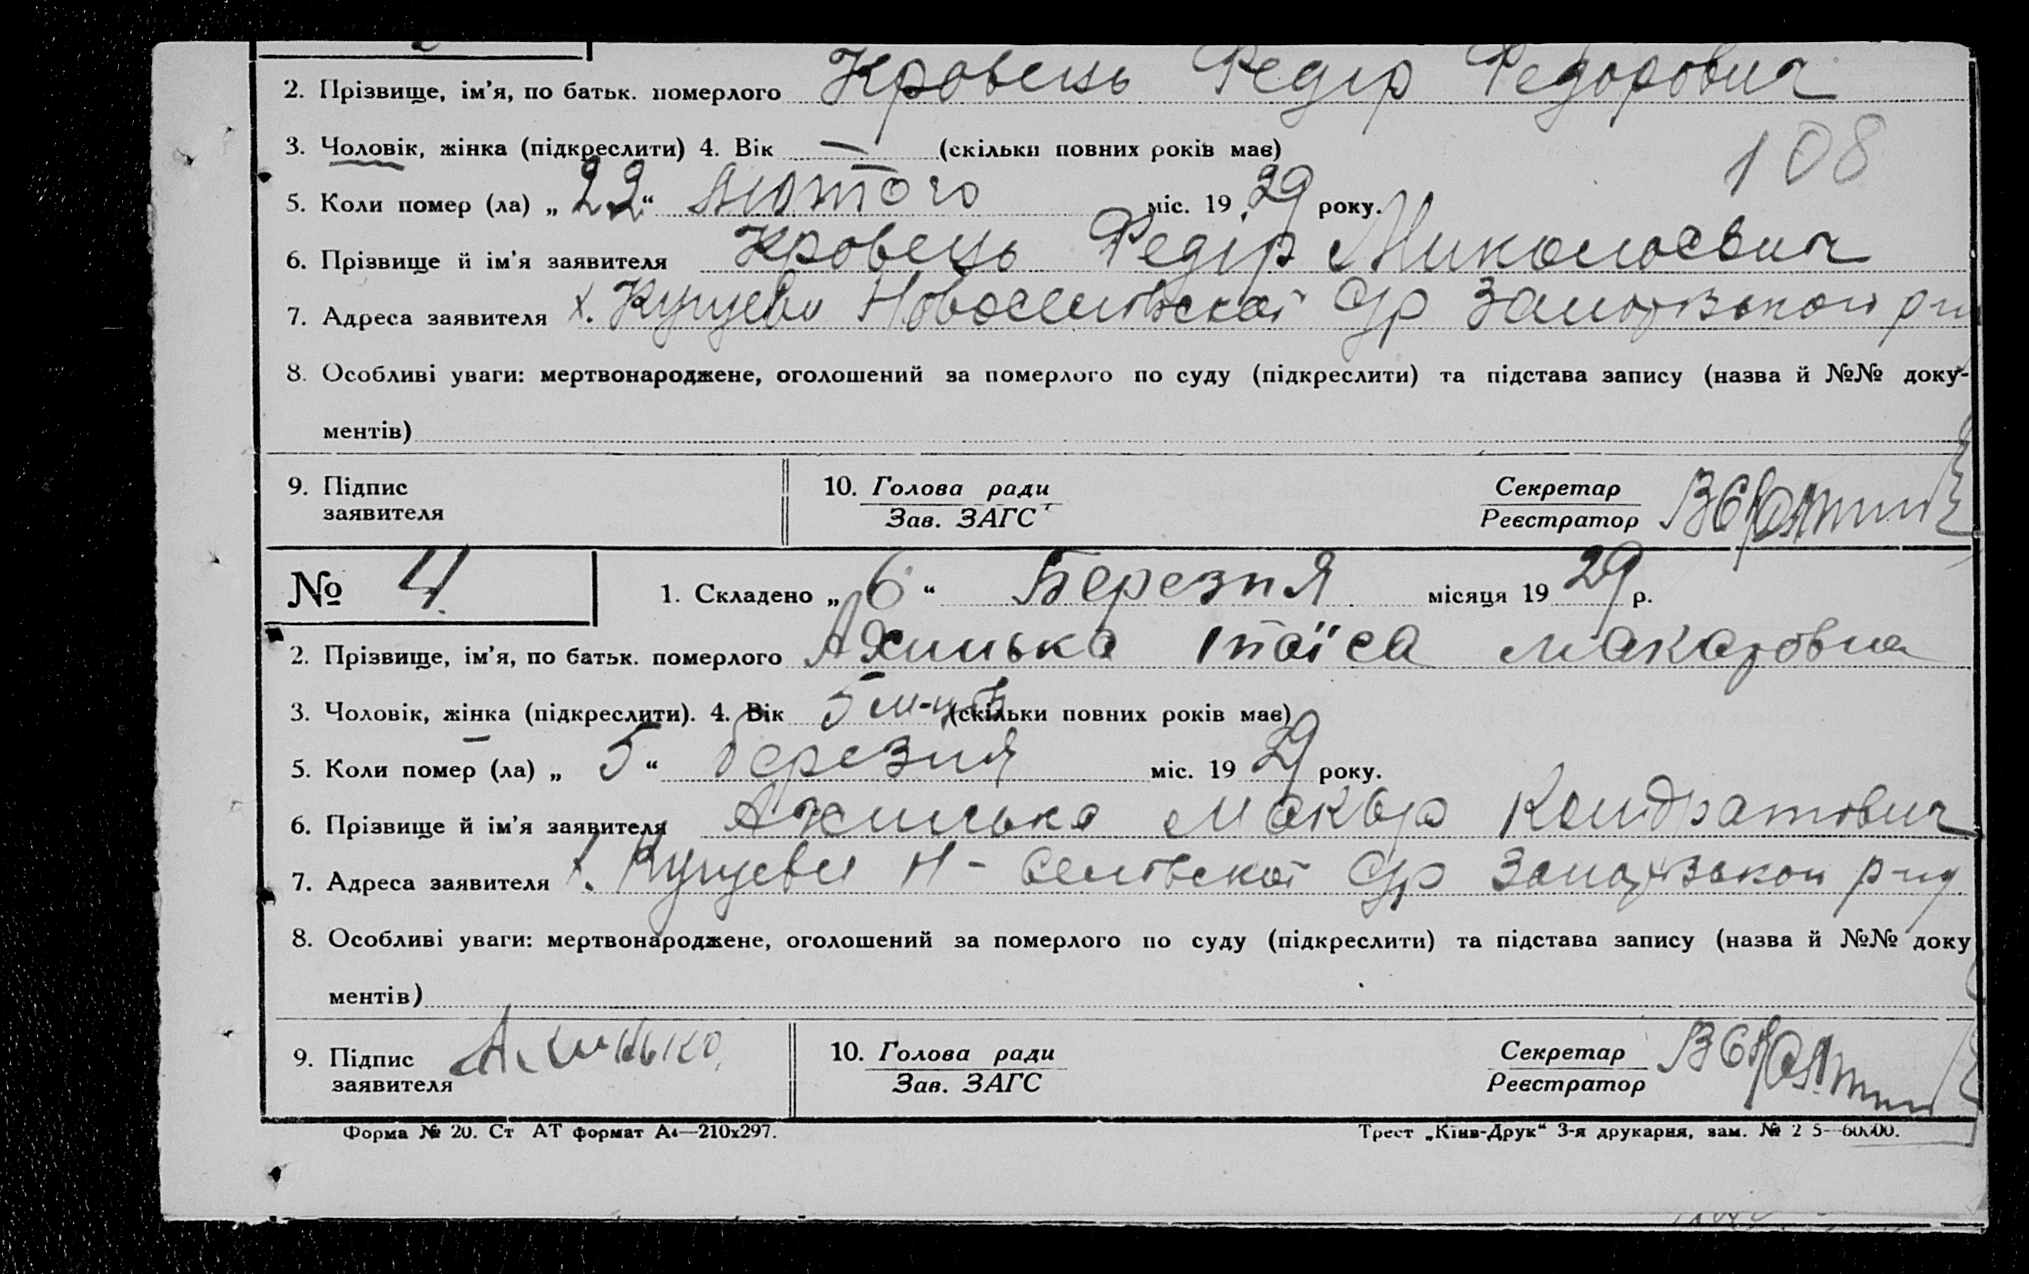 2. Прізвище, ім'я, по батьк. померлого Кровець Федір Федорович
108
3. Чоловік, жінка (підкреслити) 4. Вік — (скільки повних років має)
5. Коли помер (ла) „ 22 “ лютого міс. 19 29 року.
6. Прізвище й ім'я заявителя Кровець Федір Миколаєвич
7. Адреса заявителя х. Куцуєви
8. Особливі уваги: мертвонароджене, оголошений за померлого по суду (підкреслити) та підстава запису (назва й №№ доку-
ментів)
9. Підпис заявителя
10. Голова ради
Зав. ЗАГС
Секретар
Реєстратор
№ 4
1. Складено „ 6 “ Березня місяця 19 29 р.
2. Прізвище, ім'я, по батьк. померлого Ахинька Таїса Макаровна
3. Чоловік, жінка (підкреслити). 4. Вік 5 м-ців (скільки повних років має)
5. Коли помер (ла) „ 5 “ березня міс. 19 29 року.
6. Прізвище й ім'я заявителя Ахинько Макар Кондратович
7. Адреса заявителя х. Куцуєви
8. Особливі уваги: мертвонароджене, оголошений за померлого по суду (підкреслити) та підстава запису (назва й №№ доку
ментів)
9. Підпис заявителя Ахинько
10. Голова ради
Зав. ЗАГС
Секретар
Реєстратор
Форма № 20. Ст АТ формат А4—210х297.
Трест „Київ-Друк“ 3-я друкарня, зам. №